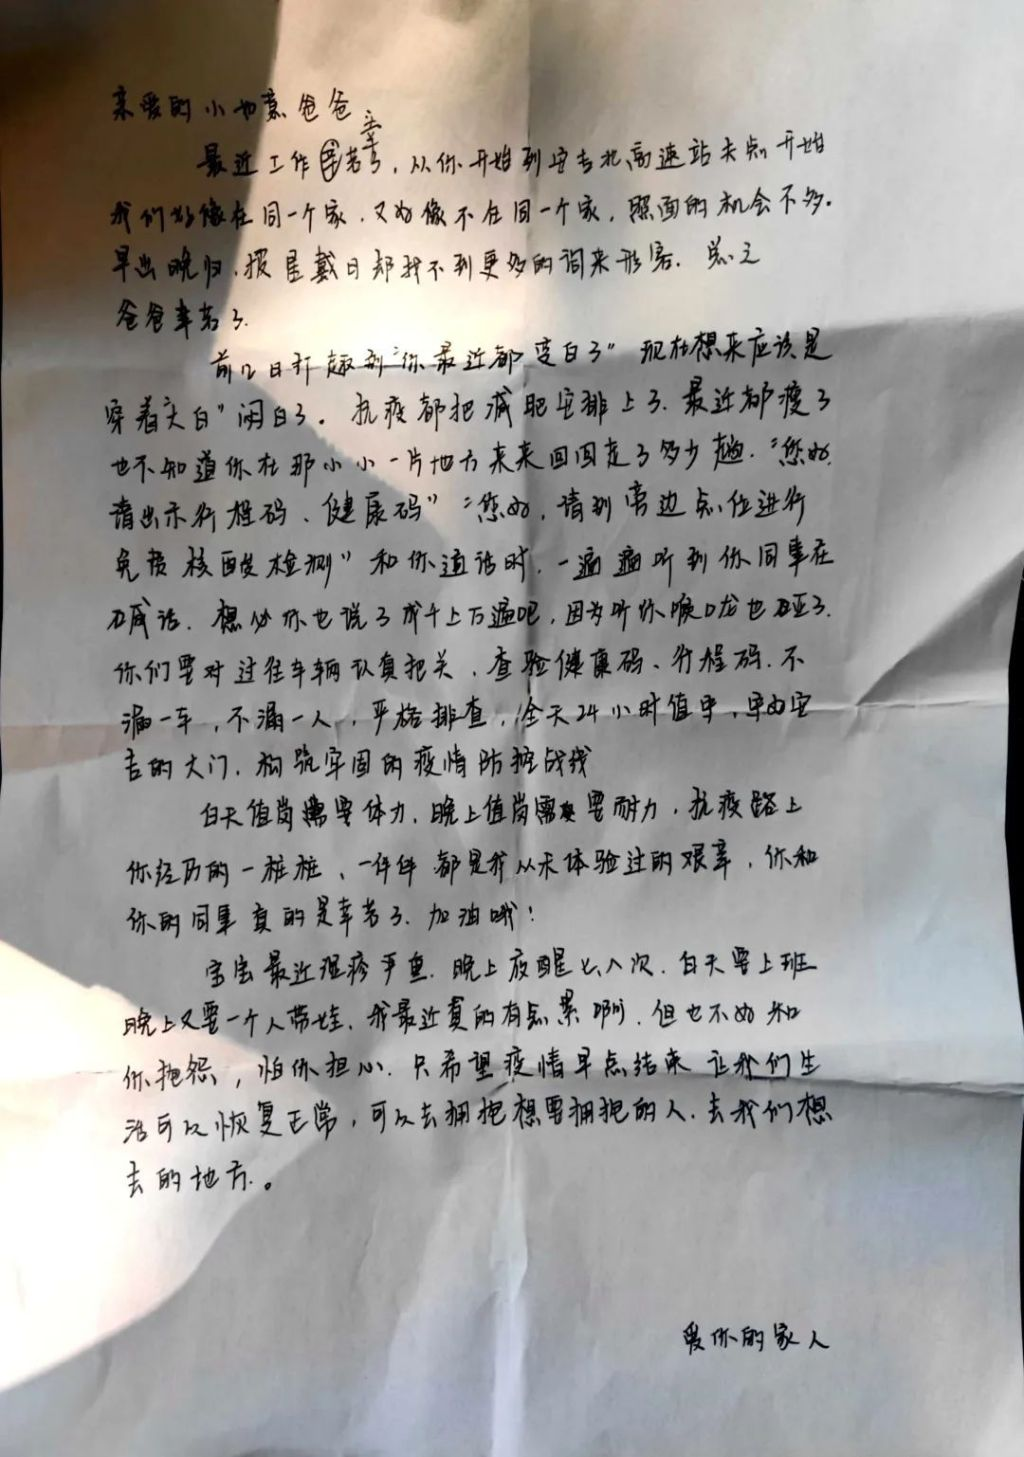 亲爱的小如意爸爸
最近工作辛苦了，从你开始到安吉北高速站点开始
我们好像在同一个家，又好像不在同一个家，照面的机会不多。
早出晚归，披星戴日却找不到更多的词来形容。总之
爸爸辛苦了。
前几日打趣到"你最近都变白了"现在想来应该是
穿着"大白"闷白了。抗疫都把减肥安排上了，最近都瘦了
也不知道你在那小小一片地方来来回回走了多少趟。"您好，
请出示行程码、健康码""您好，请到旁边点位进行
免费核酸检测"和你通话时，一遍遍听到你同事在
喊话，想必你也说了成千上万遍吧，因为听你喉咙也哑了。
你们要对过往车辆认真把关，查验健康码、行程码，不
漏一车，不漏一人，严格排查，全天24小时值守，守好安
吉的大门，构筑牢固的疫情防控战线
白天值岗需要体力，晚上值岗需要耐力，抗疫路上
你经历的一桩桩、一件件都是我从未体验过的艰辛，你和
你的同事真的是辛苦了，加油哦！
宝宝最近湿疹严重，晚上夜醒七八次，白天要上班
晚上又要一个人带娃，我最近真的有点累啊，但也不好和
你抱怨，怕你担心，只希望疫情早点结束让我们生
活可以恢复正常，可以去拥抱想要拥抱的人，去我们想
去的地方。
爱你的家人